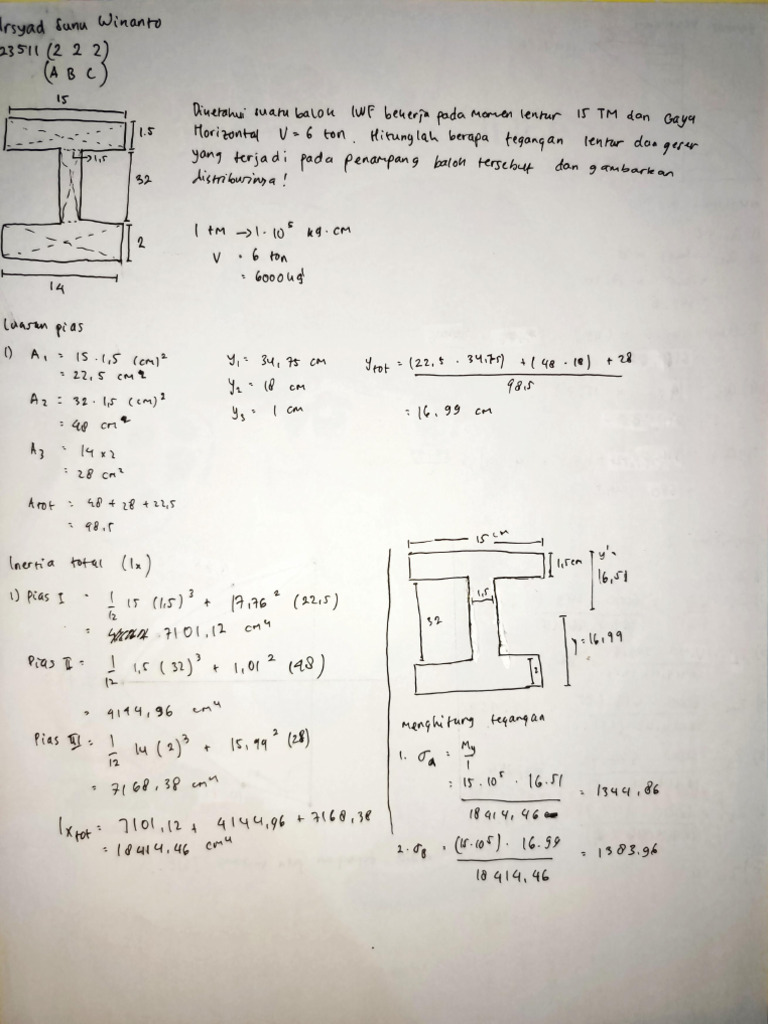 Irsyad Sunu Winanto
23511 (2 2 2)
(A B C)
15
1.5
1,5
32
2
14
Diketahui suatu balok IWF bekerja pada momen lentur 15 TM dan Gaya
Horizontal V = 6 ton. Hitunglah berapa tegangan lentur dan geser
yang terjadi pada penampang balok tersebut dan gambarkan
distribusinya!
1 tm → 1.10⁵ kg.cm
V = 6 ton
= 6000 kg
Luasan pias
1) A₁ = 15 . 1,5 (cm)²
= 22,5 cm²
A₂ = 32 . 1,5 (cm)²
= 48 cm²
A₃ = 14 x 2
= 28 cm²
Atot = 48 + 28 + 22,5
= 98,5
y₁ = 34,75 cm
y₂ = 18 cm
y₃ = 1 cm
ytot = (22,5 . 34,75) + (48 . 18) + 28
98,5
= 16,99 cm
Inertia total (Ix)
1) Pias I = 1/12 15 (1,5)³ + 17,76² (22,5)
= 7101,12 cm⁴
Pias II = 1/12 1,5 (32)³ + 1,01² (48)
= 4144,96 cm⁴
Pias III = 1/12 14 (2)³ + 15,99² (28)
= 7168,38 cm⁴
Ixtot = 7101,12 + 4144,96 + 7168,38
= 18414,46 cm⁴
15 cm
1,5cm
y'=
16,51
1,5
32
y=16,99
2
Menghitung tegangan
1. σa = My
I
= 15.10⁵ . 16.51 = 1344,86
18414,46
2. σB = (15.10⁵) . 16.99 = 1383.96
18414,46